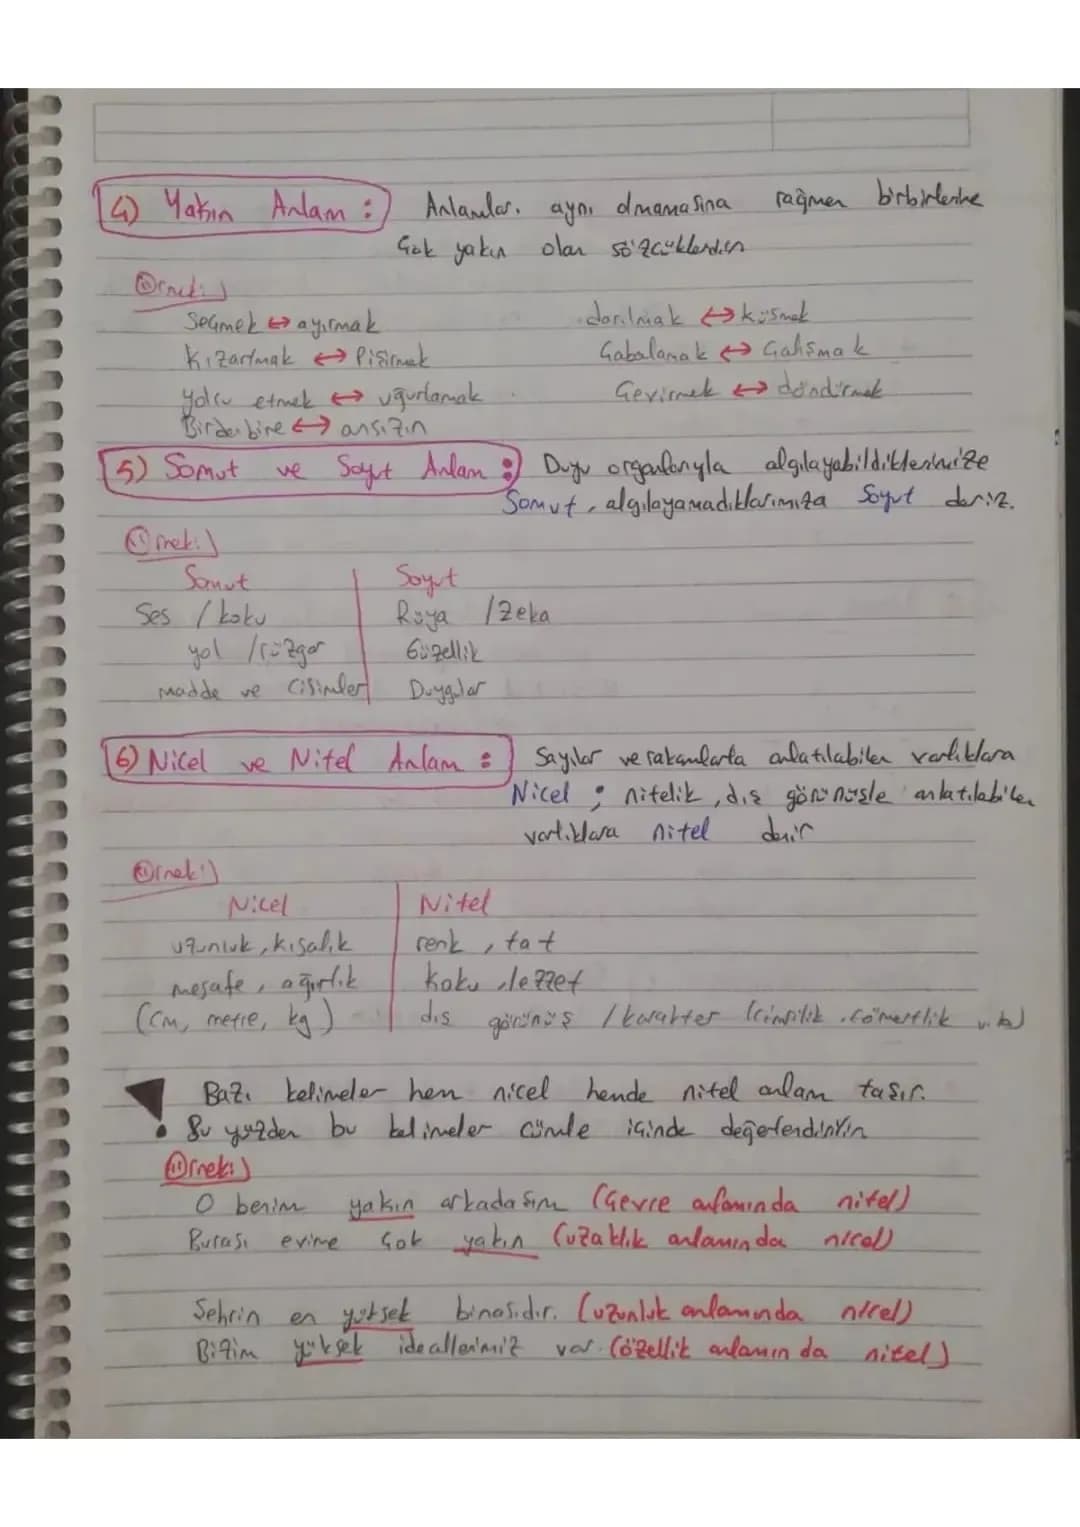 4) Yakın Anlam : Anlamları aynı olmamasına rağmen birbirlerine
çok yakın olan sözcüklerdir
Örnek:)
Seçmek ↔ ayırmak darılmak ↔ küsmek
Kızartmak ↔ Pişirmek Çabalamak ↔ Çalışmak
Yolcu etmek ↔ uğurlamak Çevirmek ↔ döndürmek
Birdenbire ↔ ansızın
5) Somut ve Soyut Anlam : Duyu organlarıyla algılayabildiklerimize
Somut, algılayamadıklarımıza Soyut deriz.
Örnek:)
Somut Soyut
Ses / koku Rüya / Zeka
yol / rüzgar Güzellik
madde ve cisimler Duygular
6) Nicel ve Nitel Anlam : Sayılar ve rakamlarla anlatılabilen varlıklara
Nicel ; nitelik, dış görünüşle anlatılabilen
varlıklara nitel denir
Örnek:)
Nicel Nitel
uzunluk, kısalık renk, tat
mesafe, ağırlık koku, lezzet
(cm, metre, kg) dış görünüş / karakter (cimrilik, cömertlik v.b)
! Bazı kelimeler hem nicel hemde nitel anlam taşır.
Bu yüzden bu kelimeler cümle içinde değerlendirilir
Örnek:)
O benim yakın arkadaşım (Çevre anlamında nitel)
Burası evime çok yakın (uzaklık anlamında nicel)
Şehrin en yüksek binasıdır. (uzunluk anlamında nicel)
Bizim yüksek ideallerimiz var. (özellik anlamında nitel)